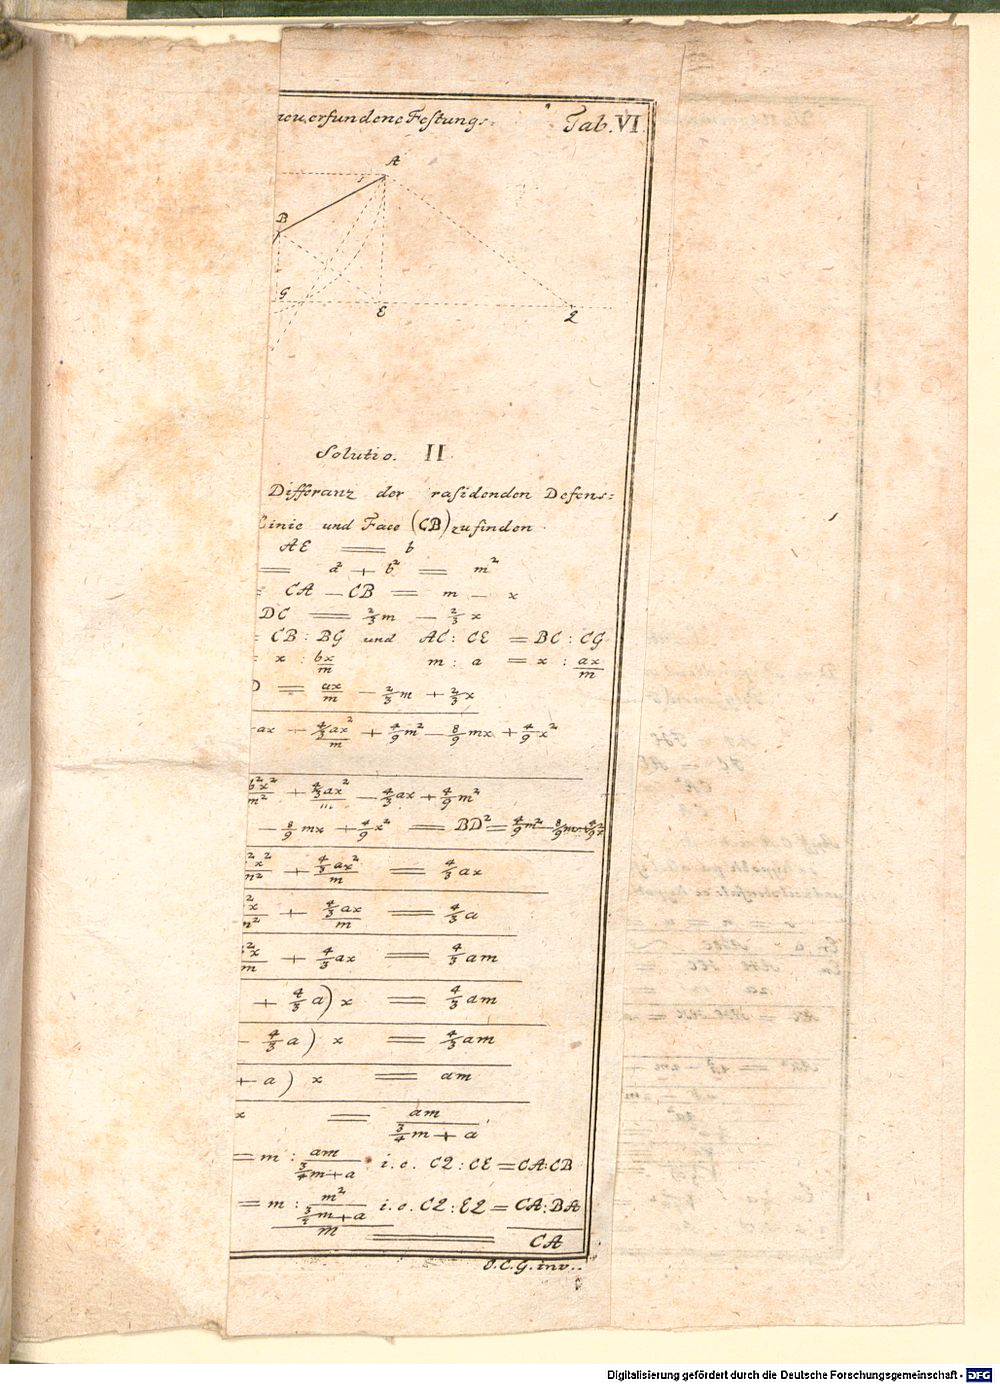 neu erfundene Festungs. Tab. VI.
A
B
G E Q
Solutio. II
Differanz der rasidenden Defens=
Linie und Face (CB) zu finden
AE = b
= a² + b² = m²
= CA - CB = m - x
DC = 2/3 m - 2/3 x
= CB : BG und AC : CE = BC : CG
= x : bx/m m : a = x : ax/m
D = ax/m - 2/3 m + 2/3 x
ax + 4/3 ax²/m + 4/9 m² - 8/9 mx + 4/9 x²
b²x²/m² + 4/3 ax²/m - 4/3 ax + 4/9 m²
- 8/9 mx + 4/9 x² = BD² = 4/9 m² - 8/9 m x + 4/9 x²
²x²/m² + 4/3 ax²/m = 4/3 ax
²x/m² + 4/3 ax/m = 4/3 a
²x/m + 4/3 ax = 4/3 am
+ 4/3 a) x = 4/3 am
- 4/3 a) x = 4/3 am
+ a) x = am
x = am / 3/4 m + a
= m : am / 3/4 m + a i. e. CQ : CE = CA : CB
= m : m² / 3/4 m + a i. e. CQ : EQ = CA : BA
m = CA
J. C. G. inv.
Digitalisierung gefördert durch die Deutsche Forschungsgemeinschaft - DFG